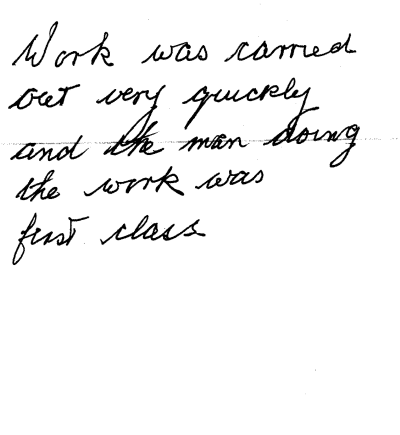 Work was carried
out very quickly
and the man doing
the work was
first class